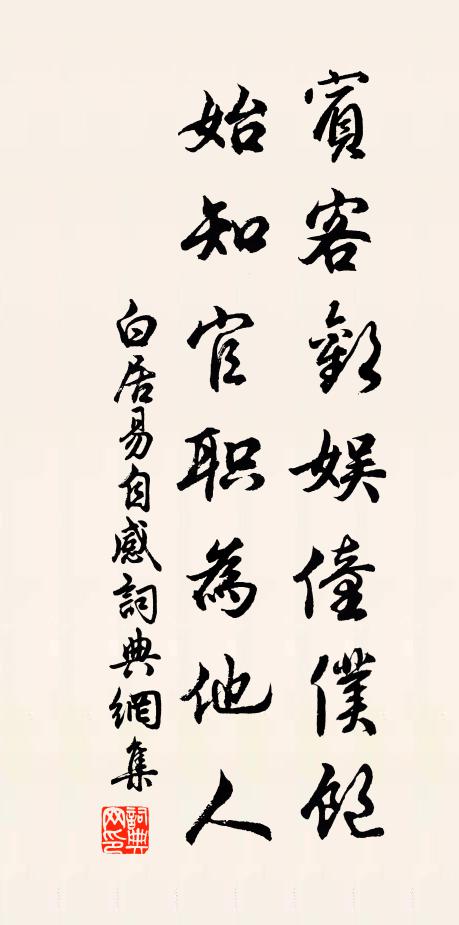 賓客歡娛僮僕飽
始知官職為他人
白居易自感詞典網集
詞典網印